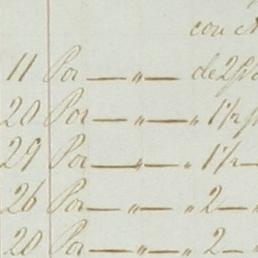 con
11 Por — " — de 2
20 Por — " — " 1 1/2
29 Por — " — " 1 1/2 —
26 Por — " — " 2 —
20 Por — " — " 2 —